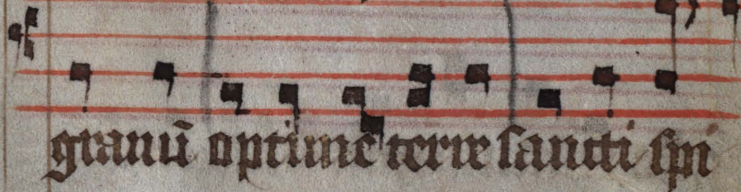 granū optime terre sancti spi